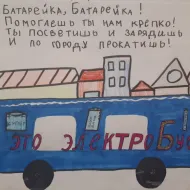 Батарейка, Батарейка!
Помогаешь ты нам крепко!
Ты посветишь и зарядишь
И по городу прокатишь!
Это электробус